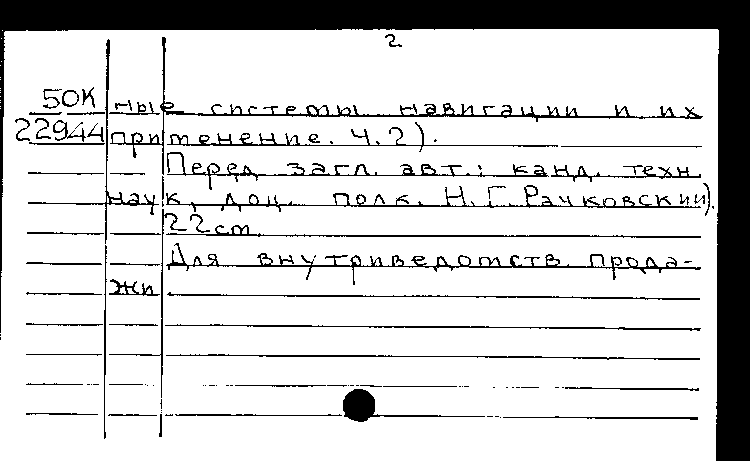 2
50К ные системы навигации и их
22944 применение. Ч.2).
Перед загл. авт.: канд. техн.
наук, доц. полк. Н.Г. Рачковский).
22 см.
Для внутриведомств. прода-
жи